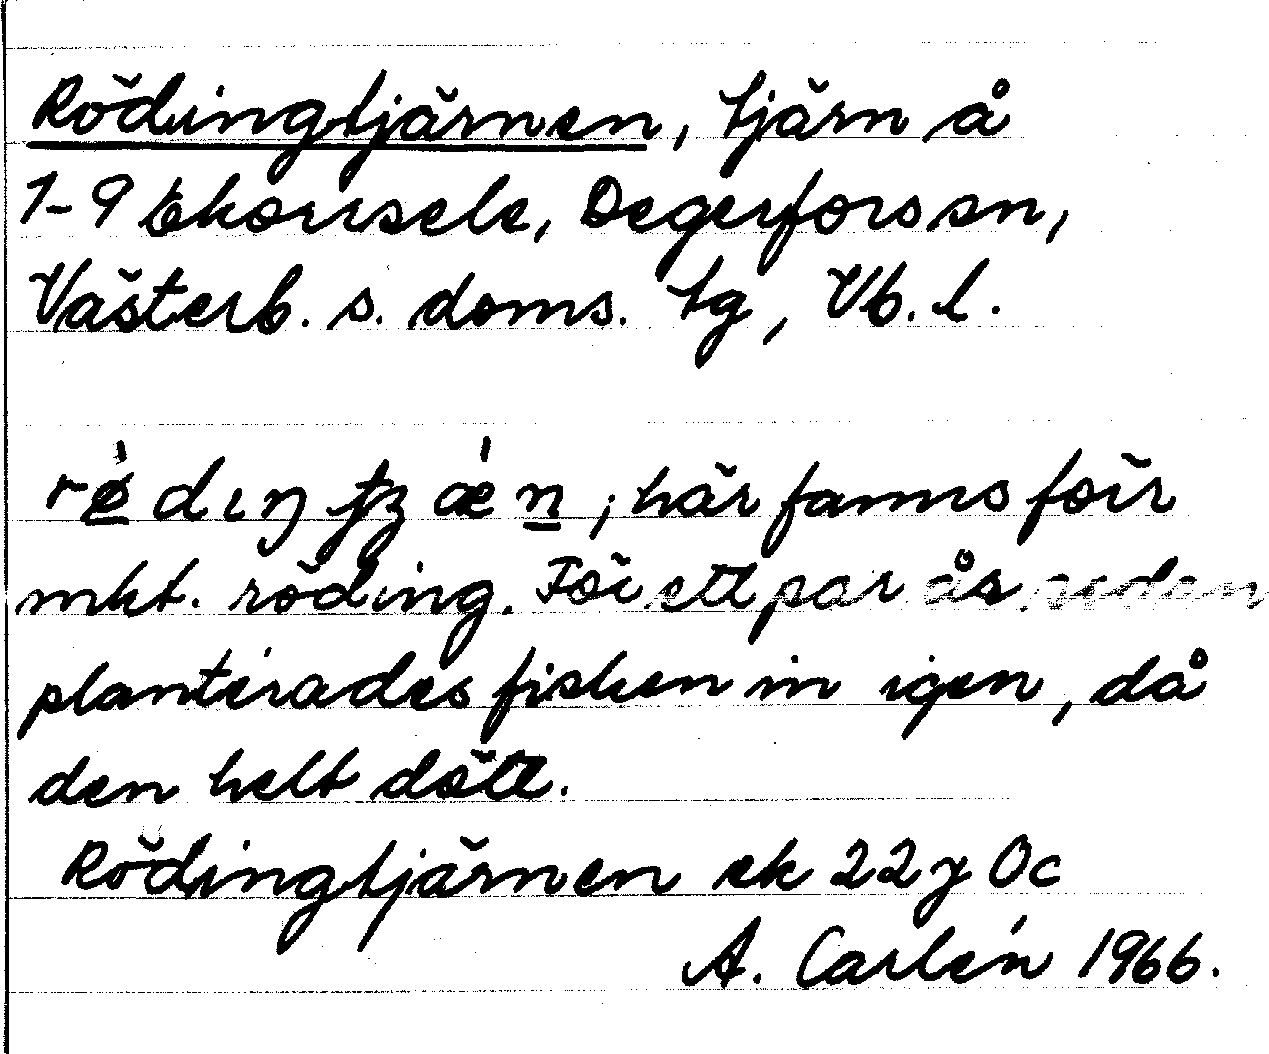 Rödingtjärnen, tjärn å
1-9 Ekorrsele, Degerfors sn,
Västerb. s. doms. tg, Vb. l.
här fanns förr
mkt. röding. För ett par år sedan
planterades fisken in igen, då
den helt dött.
Rödingtjärnen ek 22 y Oc
A. Carlén 1966.